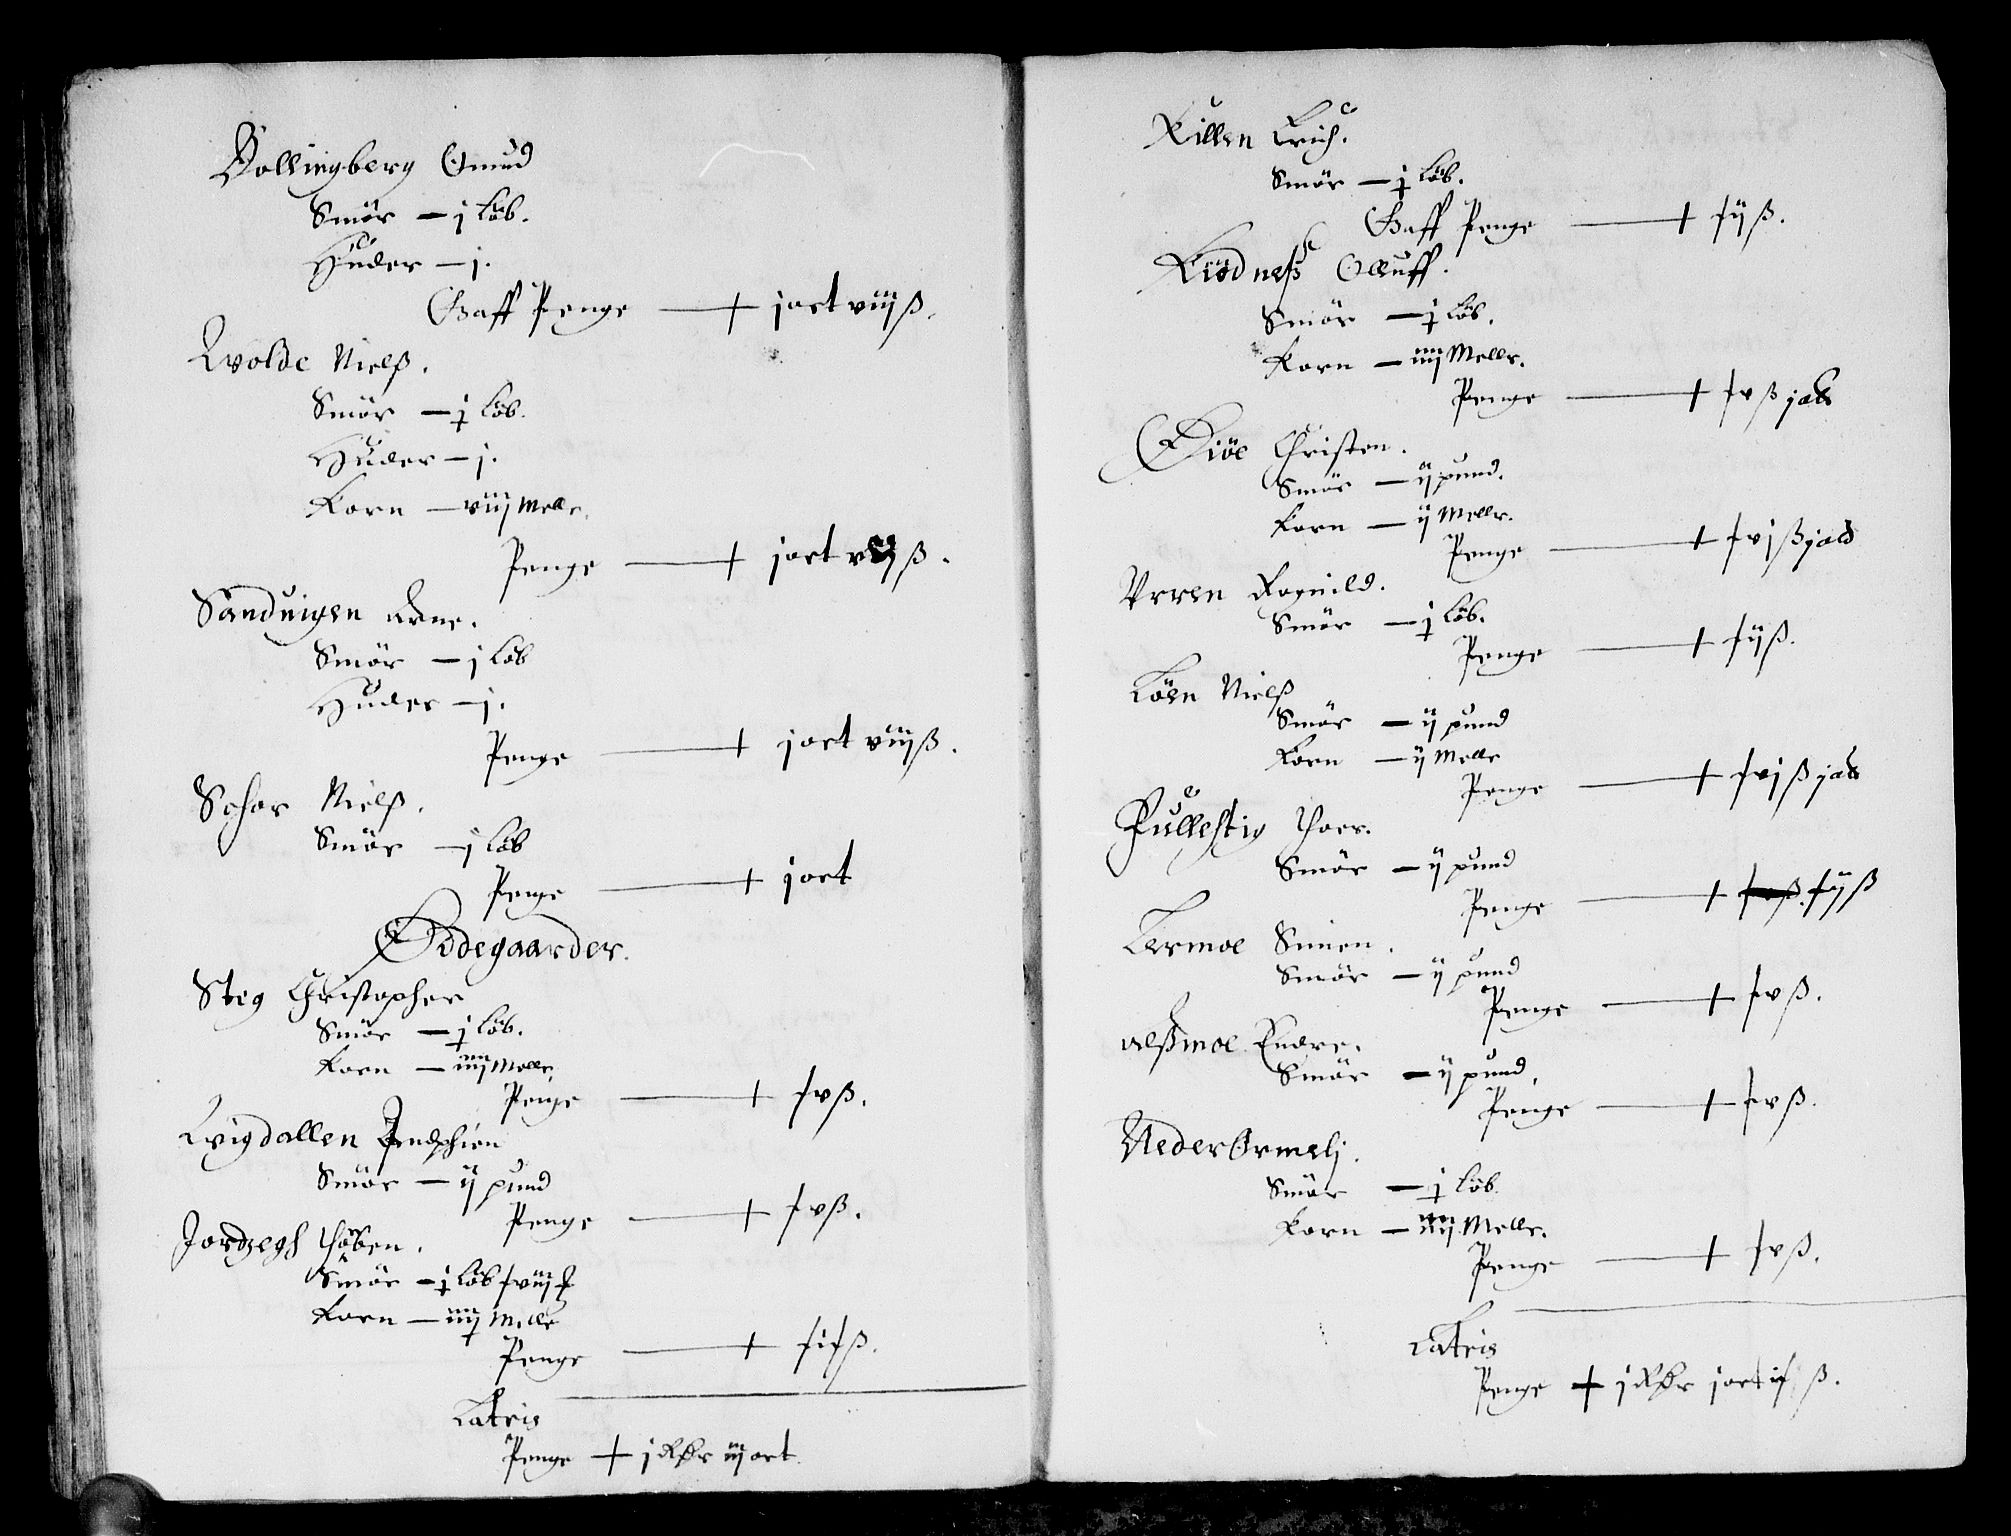 Bollingberg Gmud
Smör — j löb.
Huder — j.
Gaff Penge — + jort viijß.
Qvolde Nielß.
Smör — j löb.
Huder — j.
Korn — viij Melle.
Penge — + jort ß.
Sanduigen Arne.
Smör — j löb
Huder — j.
Penge — + jort viijß.
Schor Nielß.
Smör — j löb
Penge — + jort
Ödegaarder.
Steg Christopher
Smör — j löb.
Korn — iiij Melle.
Penge — + fvß.
Qvigdallen
Smör — ij pund
Penge — + fvß.
Smör — j löb
Korn — iiij Melle
Penge — + fifß.
Latris
Penge + j Rdr iij ort
Killen Erich.
Smör — j löb.
Gaff Penge — + fijß.
Kiödneß Olluff.
Smör — j löb.
Korn — iiij Melle.
Penge — + fvß
Öiöe Christen.
Smör — ij pund.
Korn — ij Melle.
Penge — + fvjß
Vrren Ragnild.
Smör — j löb.
Penge — + fijß.
Löen Nielß
Smör — ij pund
Korn — ij Melle
Penge — + fvjß
Fullestig
Smör — ij pund
Penge — + fijß
Lermoe Simen.
Smör — ij pund
Penge — + fvß.
Endre.
Smör — ij pund.
Penge — + fvß.
Neder Ormelj.
Smör — j löb.
Korn — iiij Melle.
Penge — + fvß.
Latris
Penge + j Rdr jort if ß.